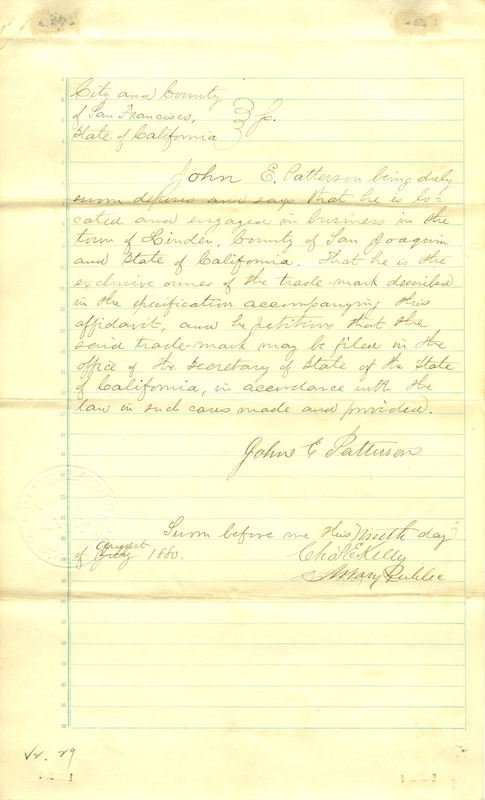 City and County
of San Francisco, } ss.
State of California
John E. Patterson being duly
sworn deposes and says that he is lo=
cated and engaged in business in the
town of Linden, County of San Joaquin
and State of California. That he is the
exclusive owner of the trade-mark described
in the specification accompanying this
affidavit, and he petitions that the
said trade-mark may be filed in the
office of the Secretary of State of the State
of California, in accordance with the
law in such cases made and provided.
John E Patterson
Sworn before me this Ninth day
August
of July 1880.
Chas E Kelly
Notary Public
29